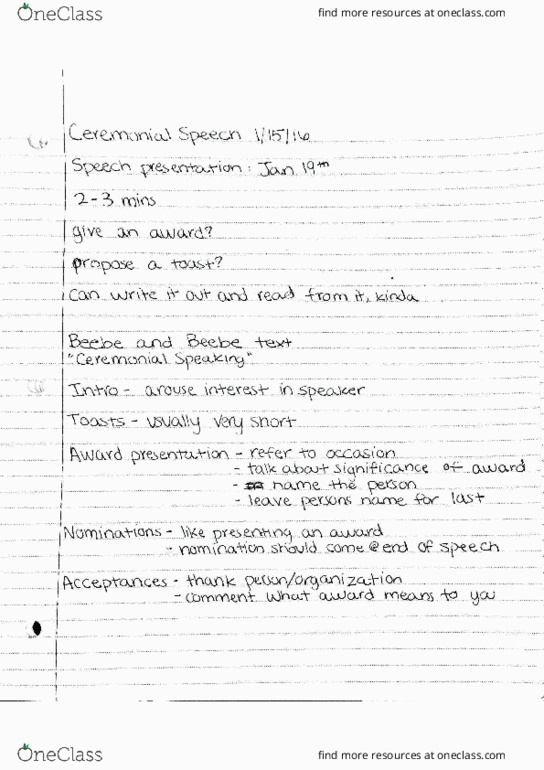 OneClass
find more resources at oneclass.com
Ceremonial Speech 1/15/16
Speech presentation: Jan 19th
2-3 mins
give an award?
propose a toast?
can write it out and read from it, kinda
Beebe and Beebe text
"Ceremonial Speaking"
Intro - arouse interest in speaker
Toasts - usually very short
Award presentation - refer to occasion
- talk about significance of award
- name the person
- leave persons name for last
Nominations - like presenting an award
- nomination should come @ end of speech
Acceptances - thank person/organization
- comment what award means to you
OneClass
find more resources at oneclass.com